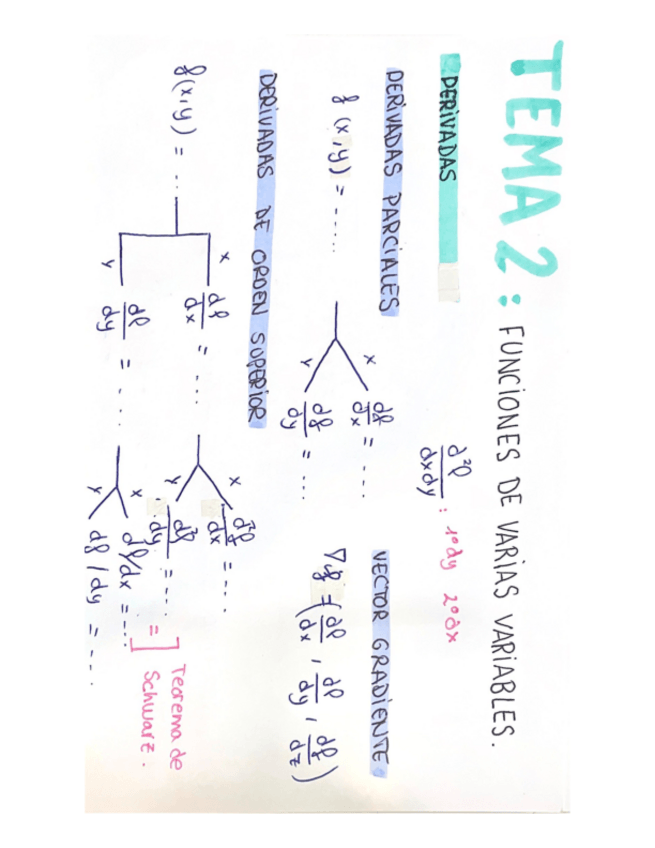 TEMA 2: FUNCIONES DE VARIAS VARIABLES.
DERIVADAS
∂²f/dxdy : 1º dy 2º ∂x
DERIVADAS PARCIALES
f(x,y) = ......
x ∂f/∂x = ....
y ∂f/∂y = ....
VECTOR GRADIENTE
∇f = (df/dx, df/dy, df/dz)
DERIVADAS DE ORDEN SUPERIOR
f(x,y) = ...
x df/dx = ....
x d²f/dx = ....
y d²f/dy = ....
y df/dy = ....
x df/dx = ....
y df/dy = ....
= ] Teorema de
Schwarz.